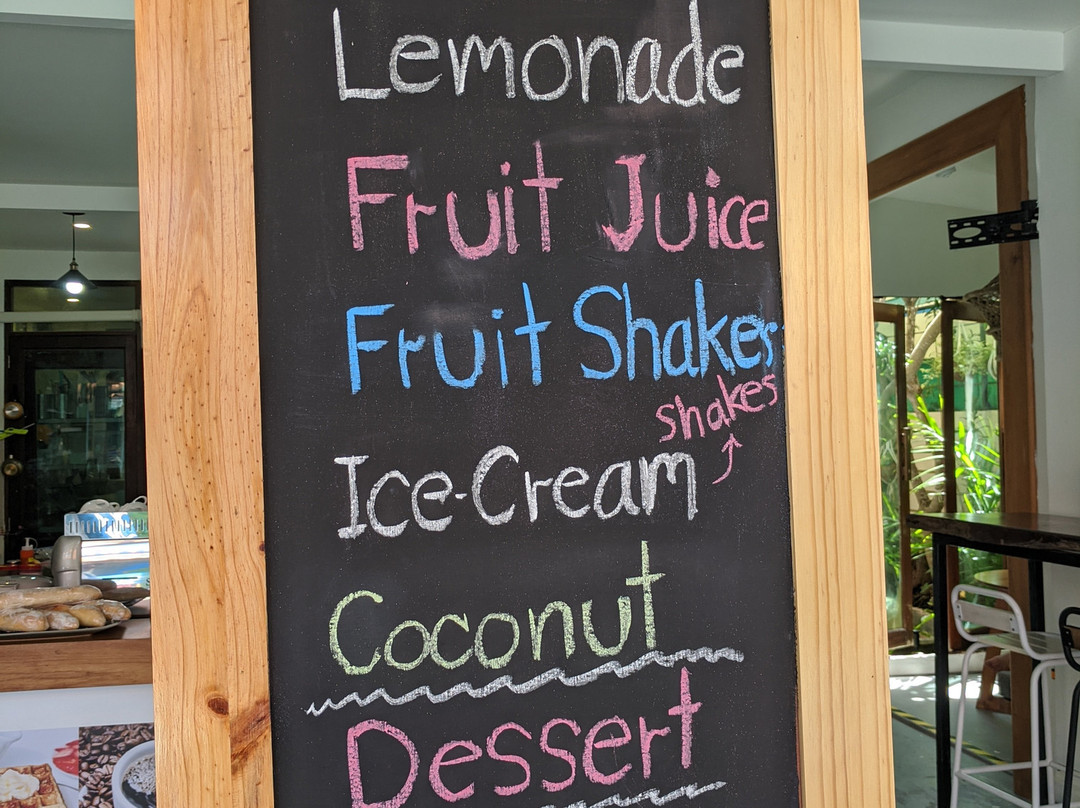 Lemonade
Fruit Juice
Fruit Shakes
shakes
Ice-Cream
Coconut
Dessert